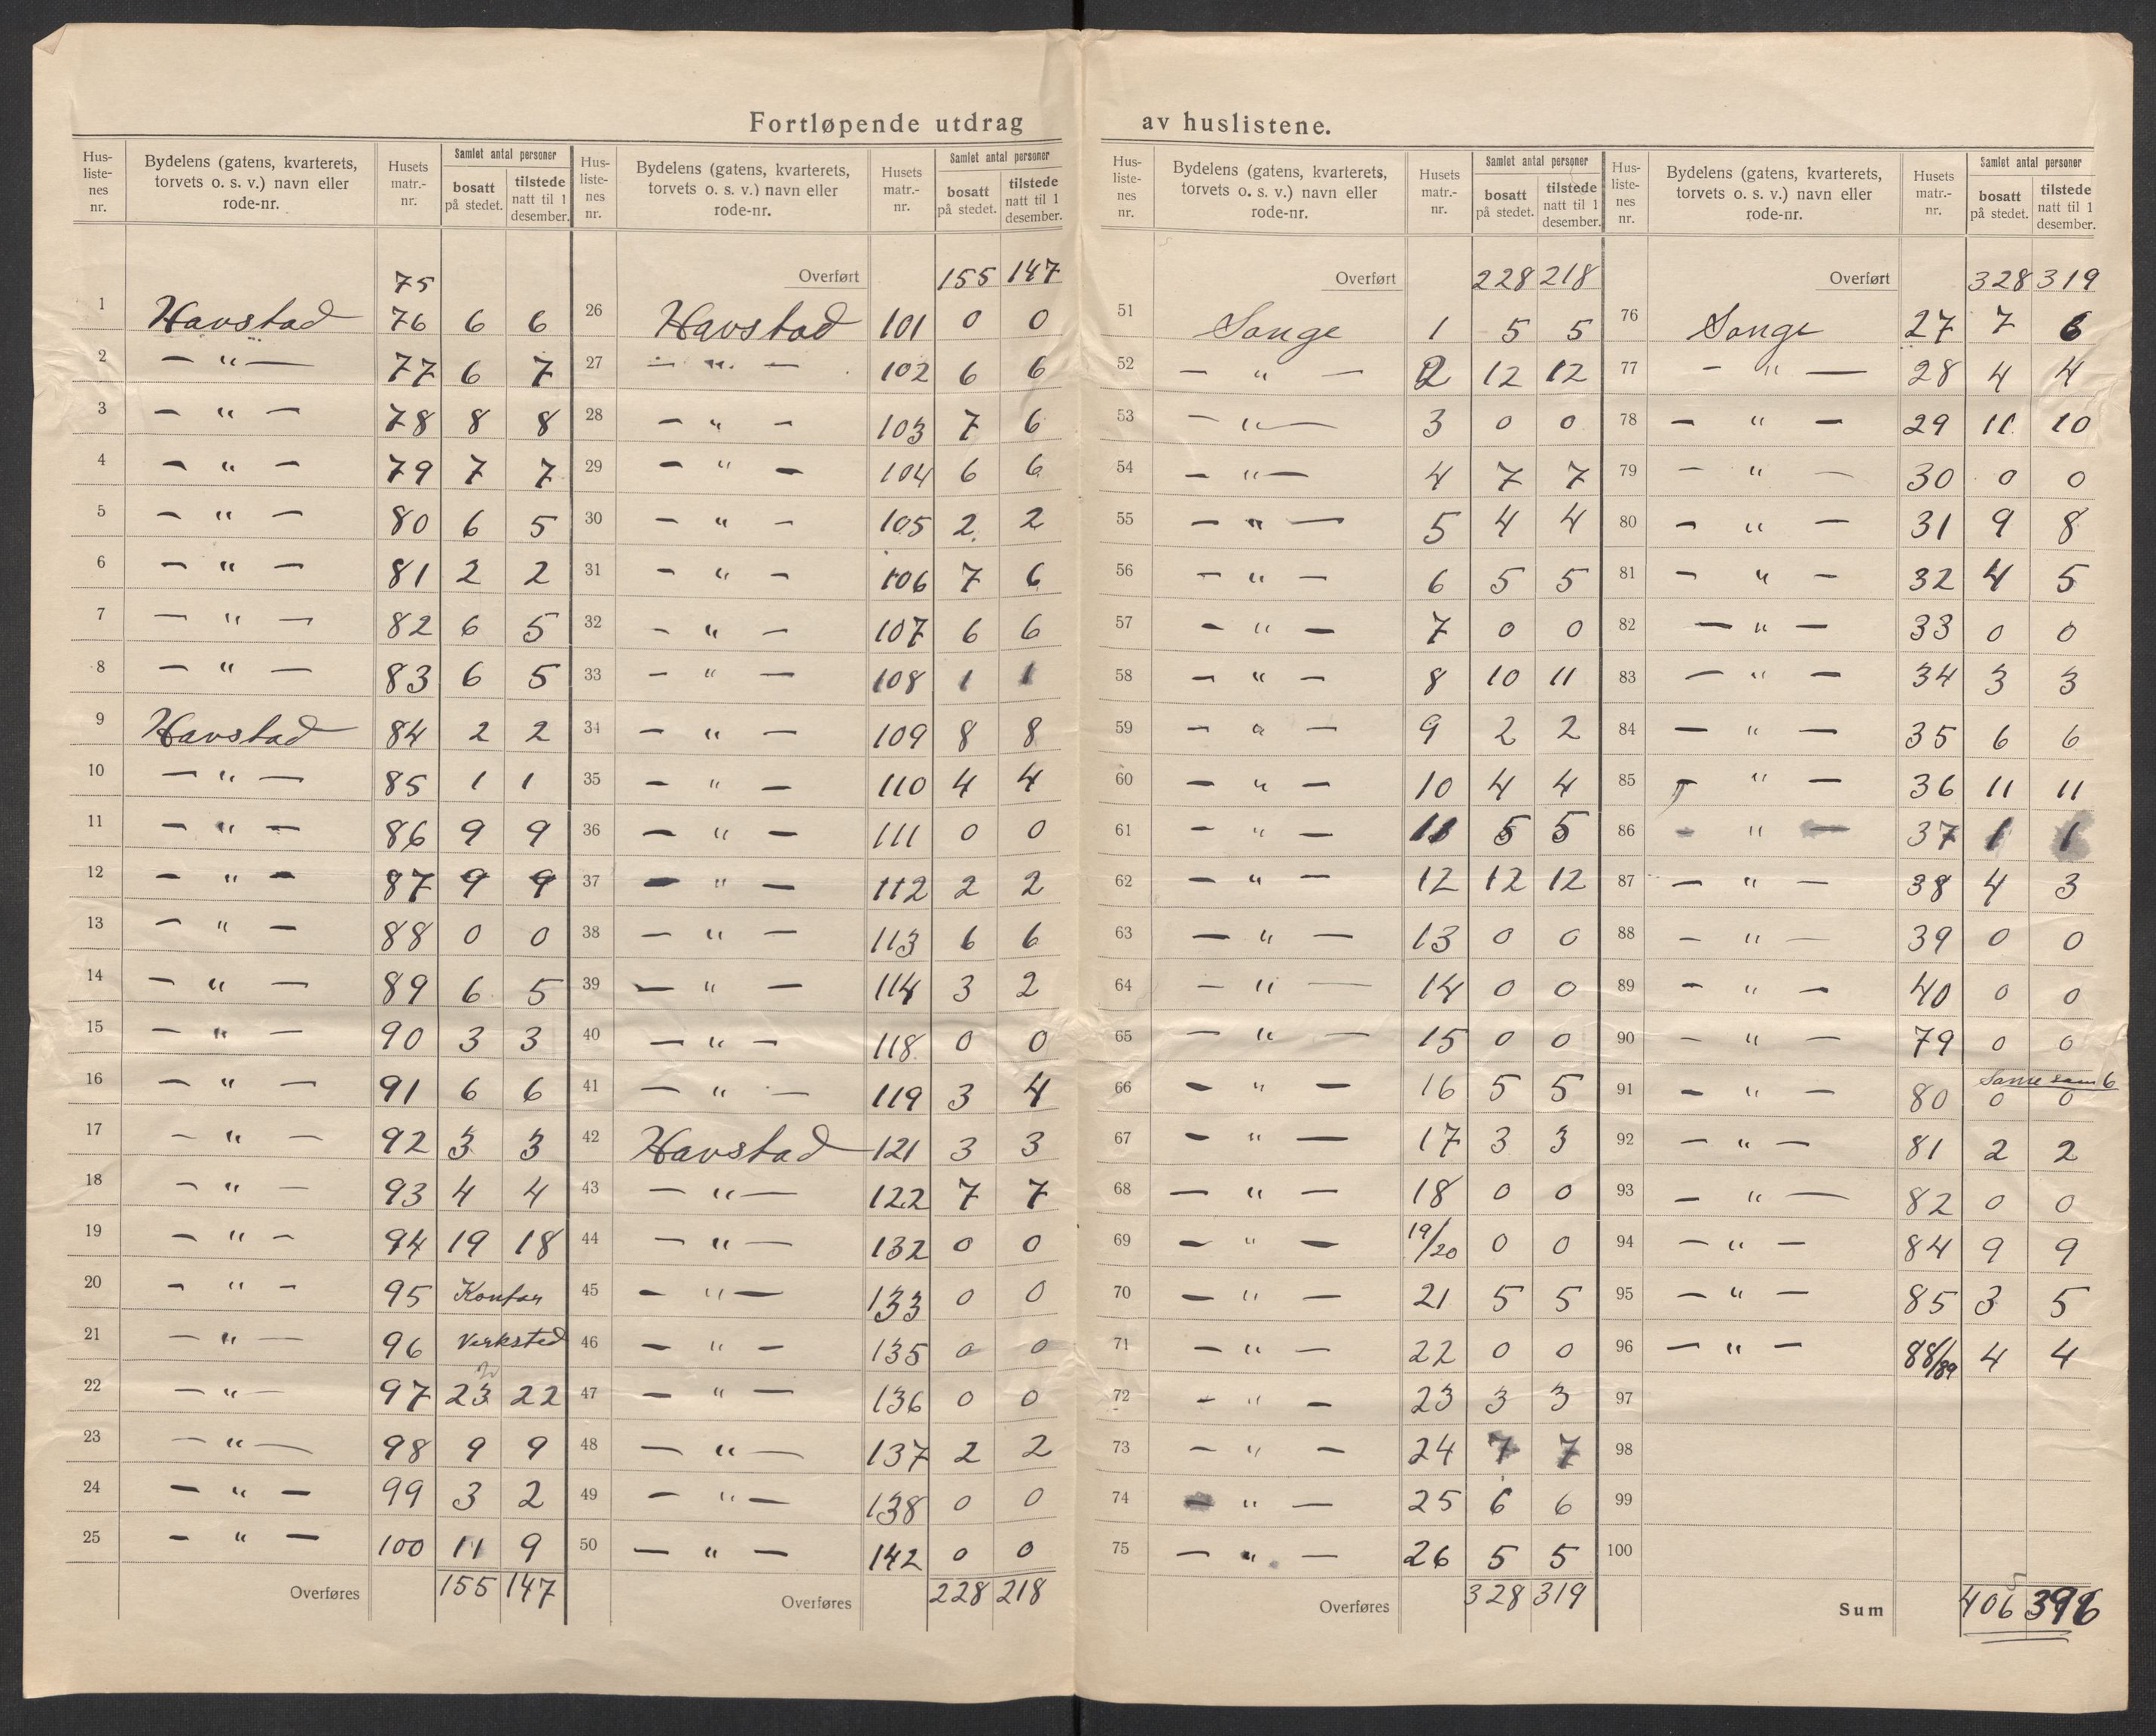 Fortløpende utdrag av huslistene.
Hus-listenes nr. | Bydelens (gatens, kvarterets, torvets o. s. v.) navn eller rode-nr. | Husets matr.-nr. | Samlet antal personer bosatt på stedet. | tilstede natt til 1 desember.
75
1 Havstad 76 6 6
2 — " — 77 6 7
3 — " — 78 8 8
4 — " — 79 7 7
5 — " — 80 6 5
6 — " — 81 2 2
7 — " — 82 6 5
8 — " — 83 6 5
9 Havstad 84 2 2
10 — " — 85 1 1
11 — " — 86 9 9
12 — " — 87 9 9
13 — " — 88 0 0
14 — " — 89 6 5
15 — " — 90 3 3
16 — " — 91 6 6
17 — " — 92 3 3
18 — " — 93 4 4
19 — " — 94 19 18
20 — " — 95 Kontor
21 — " — 96 Verksted
22 — " — 97 23 22
23 — " — 98 9 9
24 — " — 99 3 2
25 — " — 100 11 9
Overføres 155 147
Hus-listenes nr. | Bydelens (gatens, kvarterets, torvets o. s. v.) navn eller rode-nr. | Husets matr.-nr. | Samlet antal personer bosatt på stedet. | tilstede natt til 1 desember.
Overført 155 147
26 Havstad 101 0 0
27 — " — 102 6 6
28 — " — 103 7 6
29 — " — 104 6 6
30 — " — 105 2 2
31 — " — 106 7 6
32 — " — 107 6 6
33 — " — 108 1 1
34 — " — 109 8 8
35 — " — 110 4 4
36 — " — 111 0 0
37 — " — 112 2 2
38 — " — 113 6 6
39 — " — 114 3 2
40 — " — 118 0 0
41 — " — 119 3 4
42 Havstad 121 3 3
43 — " — 122 7 7
44 — " — 132 0 0
45 — " — 133 0 0
46 — " — 135 0 0
47 — " — 136 0 0
48 — " — 137 2 2
49 — " — 138 0 0
50 — " — 142 0 0
Overføres 228 218
Hus-listenes nr. | Bydelens (gatens, kvarterets, torvets o. s. v.) navn eller rode-nr. | Husets matr.-nr. | Samlet antal personer bosatt på stedet. | tilstede natt til 1 desember.
Overført 228 218
51 Songe 1 5 5
52 — " — 2 12 12
53 — " — 3 0 0
54 — " — 4 7 7
55 — " — 5 4 4
56 — " — 6 5 5
57 — " — 7 0 0
58 — " — 8 10 11
59 — " — 9 2 2
60 — " — 10 4 4
61 — " — 11 5 5
62 — " — 12 12 12
63 — " — 13 0 0
64 — " — 14 0 0
65 — " — 15 0 0
66 — " — 16 5 5
67 — " — 17 3 3
68 — " — 18 0 0
69 — " — 19/20 0 0
70 — " — 21 5 5
71 — " — 22 0 0
72 — " — 23 3 3
73 — " — 24 7 7
74 — " — 25 6 6
75 — " — 26 5 5
Overføres 328 319
Hus-listenes nr. | Bydelens (gatens, kvarterets, torvets o. s. v.) navn eller rode-nr. | Husets matr.-nr. | Samlet antal personer bosatt på stedet. | tilstede natt til 1 desember.
Overført 328 319
76 Songe 27 7 6
77 — " — 28 4 4
78 — " — 29 11 10
79 — " — 30 0 0
80 — " — 31 9 8
81 — " — 32 4 5
82 — " — 33 0 0
83 — " — 34 3 3
84 — " — 35 6 6
85 — " — 36 11 11
86 — " — 37 1 1
87 — " — 38 4 3
88 — " — 39 0 0
89 — " — 40 0 0
90 — " — 79 0 0
Samme som 6
91 — " — 80 0 0
92 — " — 81 2 2
93 — " — 82 0 0
94 — " — 84 9 9
95 — " — 85 3 5
96 — " — 88/89 4 4
97
98
99
100
Sum 406 396